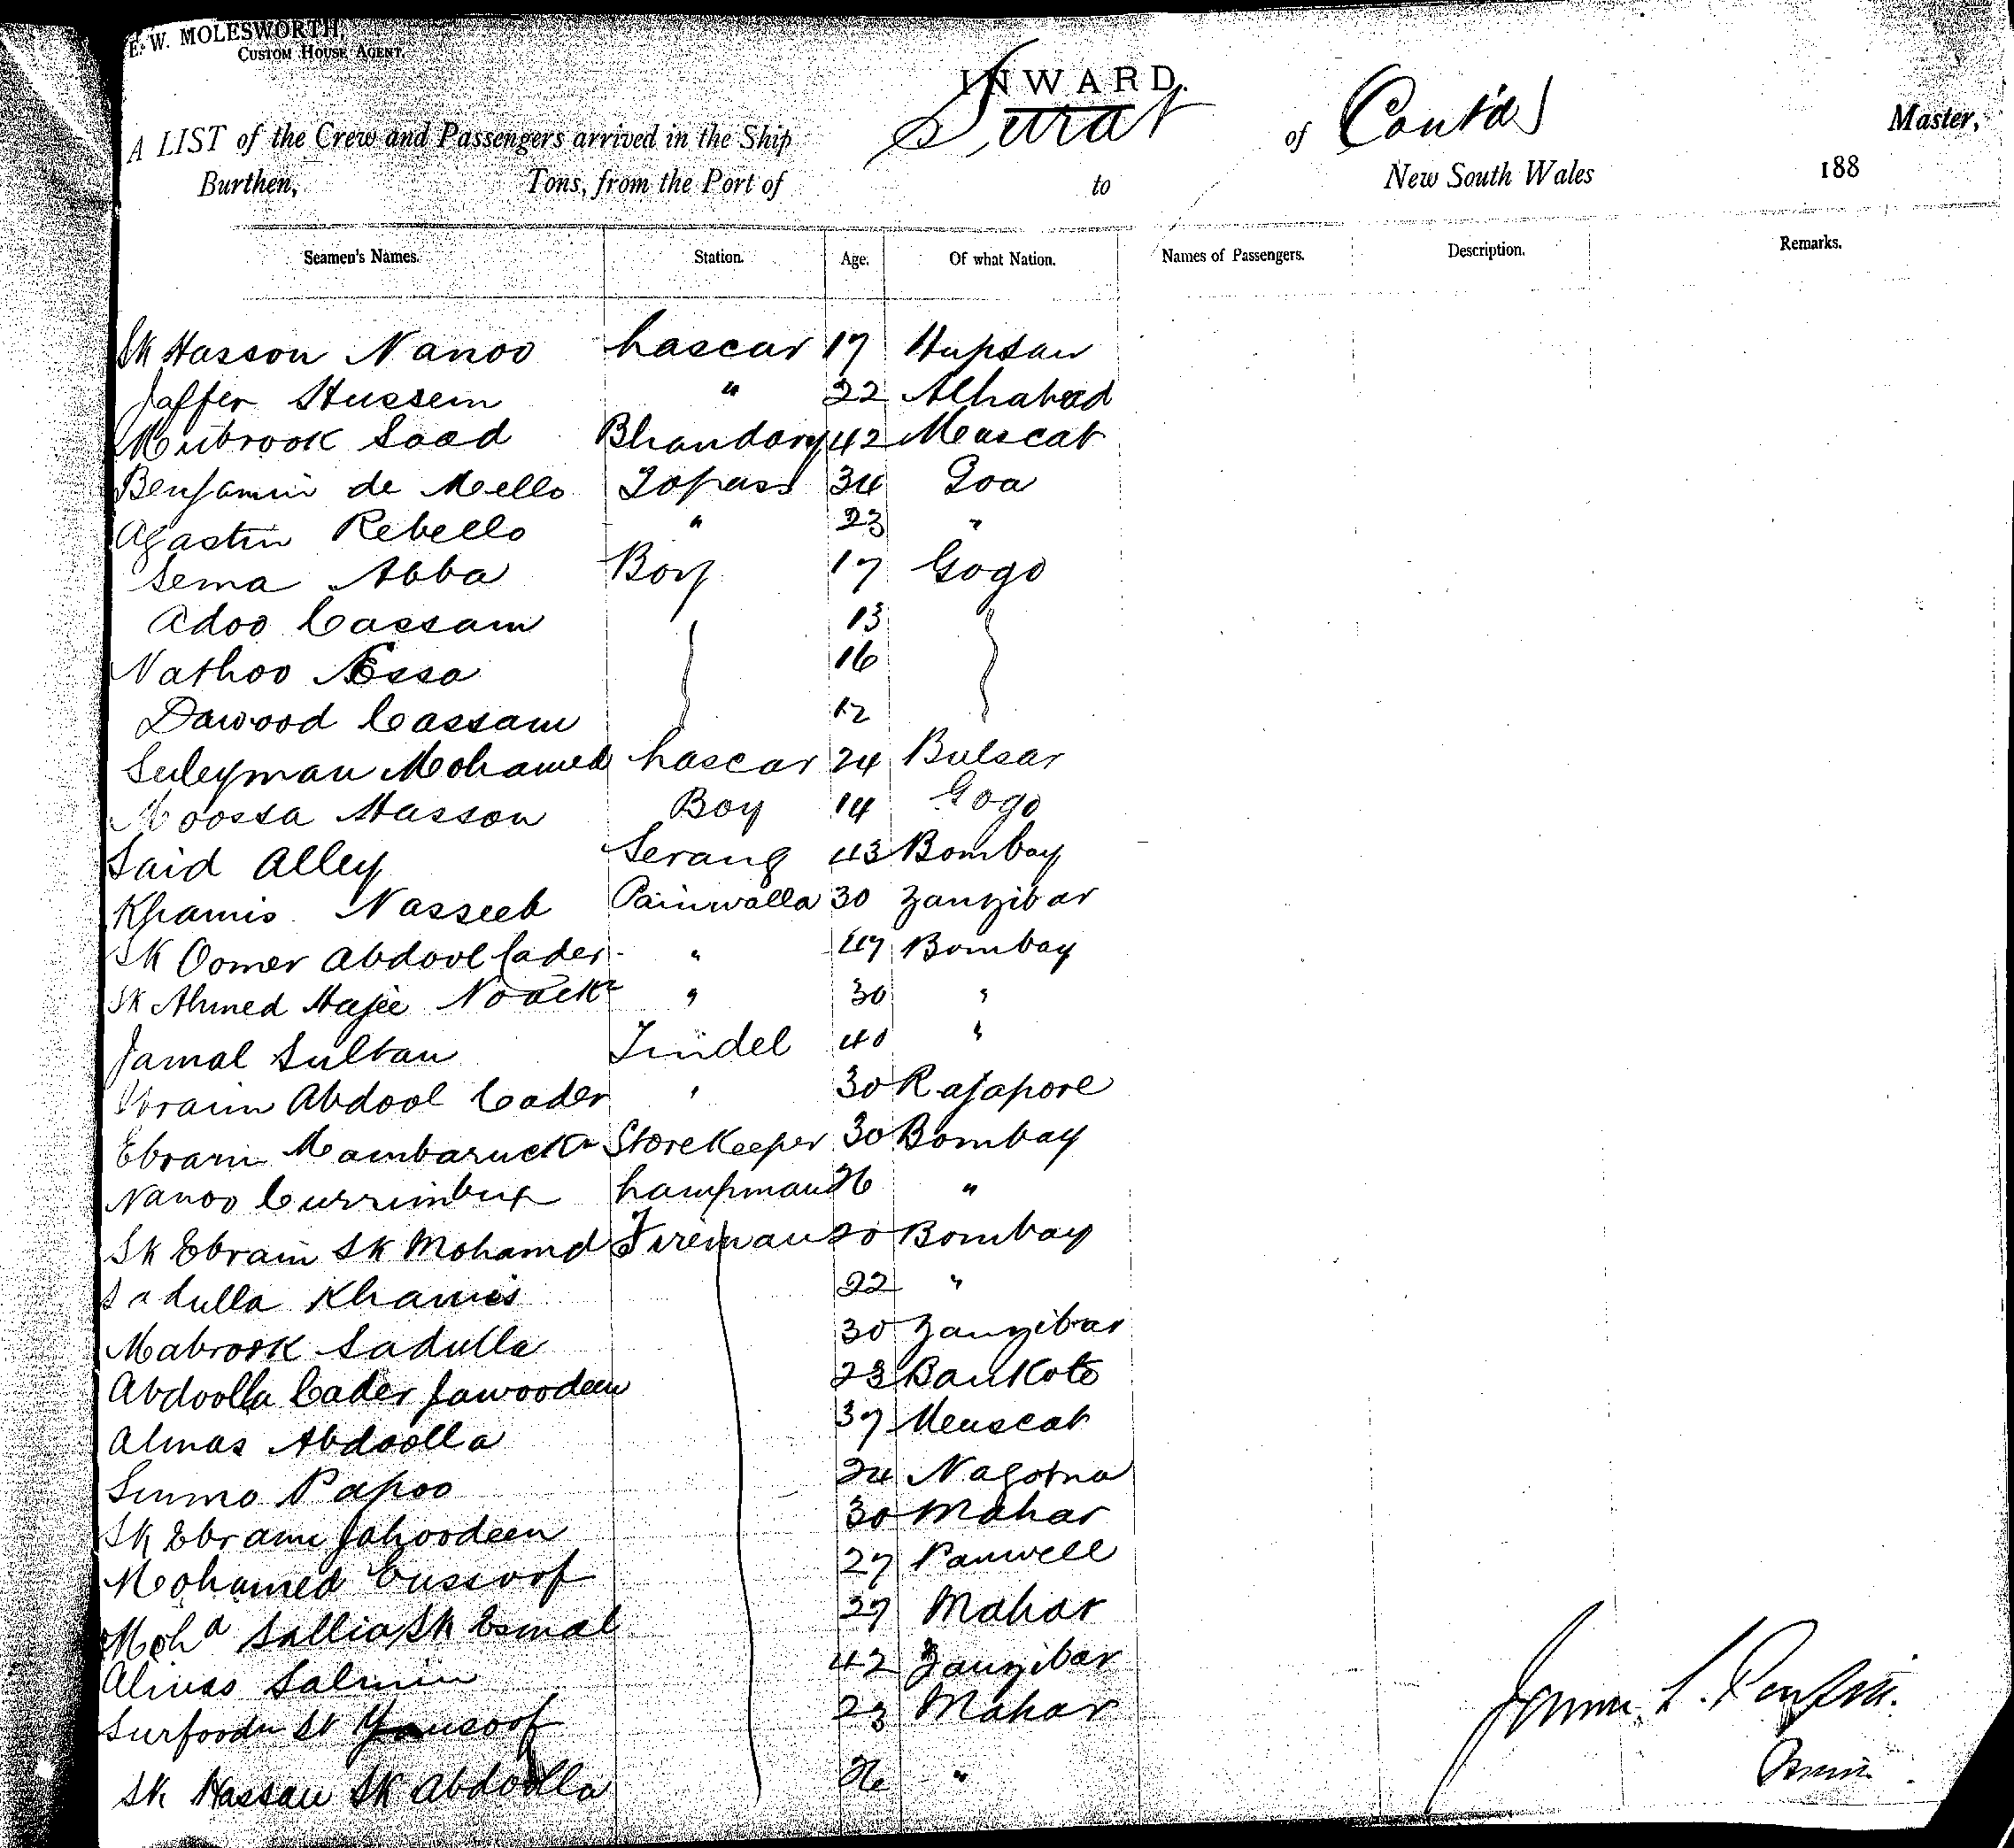 E. W. MOLESWORTH,
CUSTOM HOUSE AGENT.
INWARD.
A LIST of the Crew and Passengers arrived in the Ship Surat of Contd Master,
Burthen, Tons, from the Port of to New South Wales 188
Seamen's Names. Station. Age. Of what Nation. Names of Passengers. Description. Remarks.
Sk Hasson Nanoo Lascar 17
Jaffer Hussein " 22 Alhabad
Mubrook Saad Bhandary 42 Muscat
Benjamin de Mello Topass 34 Goa
Agastin Rebello " 23 "
Sema Abba Boy 17 Gogo
Adoo Cassam 13
Nathoo Essa 16
Dawood Cassam 12
Suleyman Mohamed Lascar 24 Bulsar
Moossa Hasson Boy 14 Gogo
Said Alley Serang 43 Bombay
Khamis Nasseeb Painwalla 30 Zanzibar
Sk Oomer Abdool Cader " 47 Bombay
Sk Ahmed Hajee " 30 "
Jamal Sultan Tindel 40 "
Ibraim Abdool Cader " 30 Rajapore
Ebraim Mambaruck Storekeeper 30 Bombay
Nanoo Currimbux Lampman 26 "
Sk Ebraim Sk Mohamd Fireman 20 Bombay
Sadulla Khamis 22 "
Mabrook Sadulla 30 Zanzibar
Abdoolla Cader Jawoodeen 23 Bankote
Almas Abdoolla 37 Muscat
Papoo 24 Nagotna
Sk Ebraim Jahoodeen 30 Mahar
Mohamed Eussoof 27 Panwell
Mohd Sallia Sk Esmal 27 Mahar
Almas Salmin 42 Zanzibar
Surfoodn Sk Yousoof 23 Mahar
Sk Hassan Sk Abdoolla 26 "